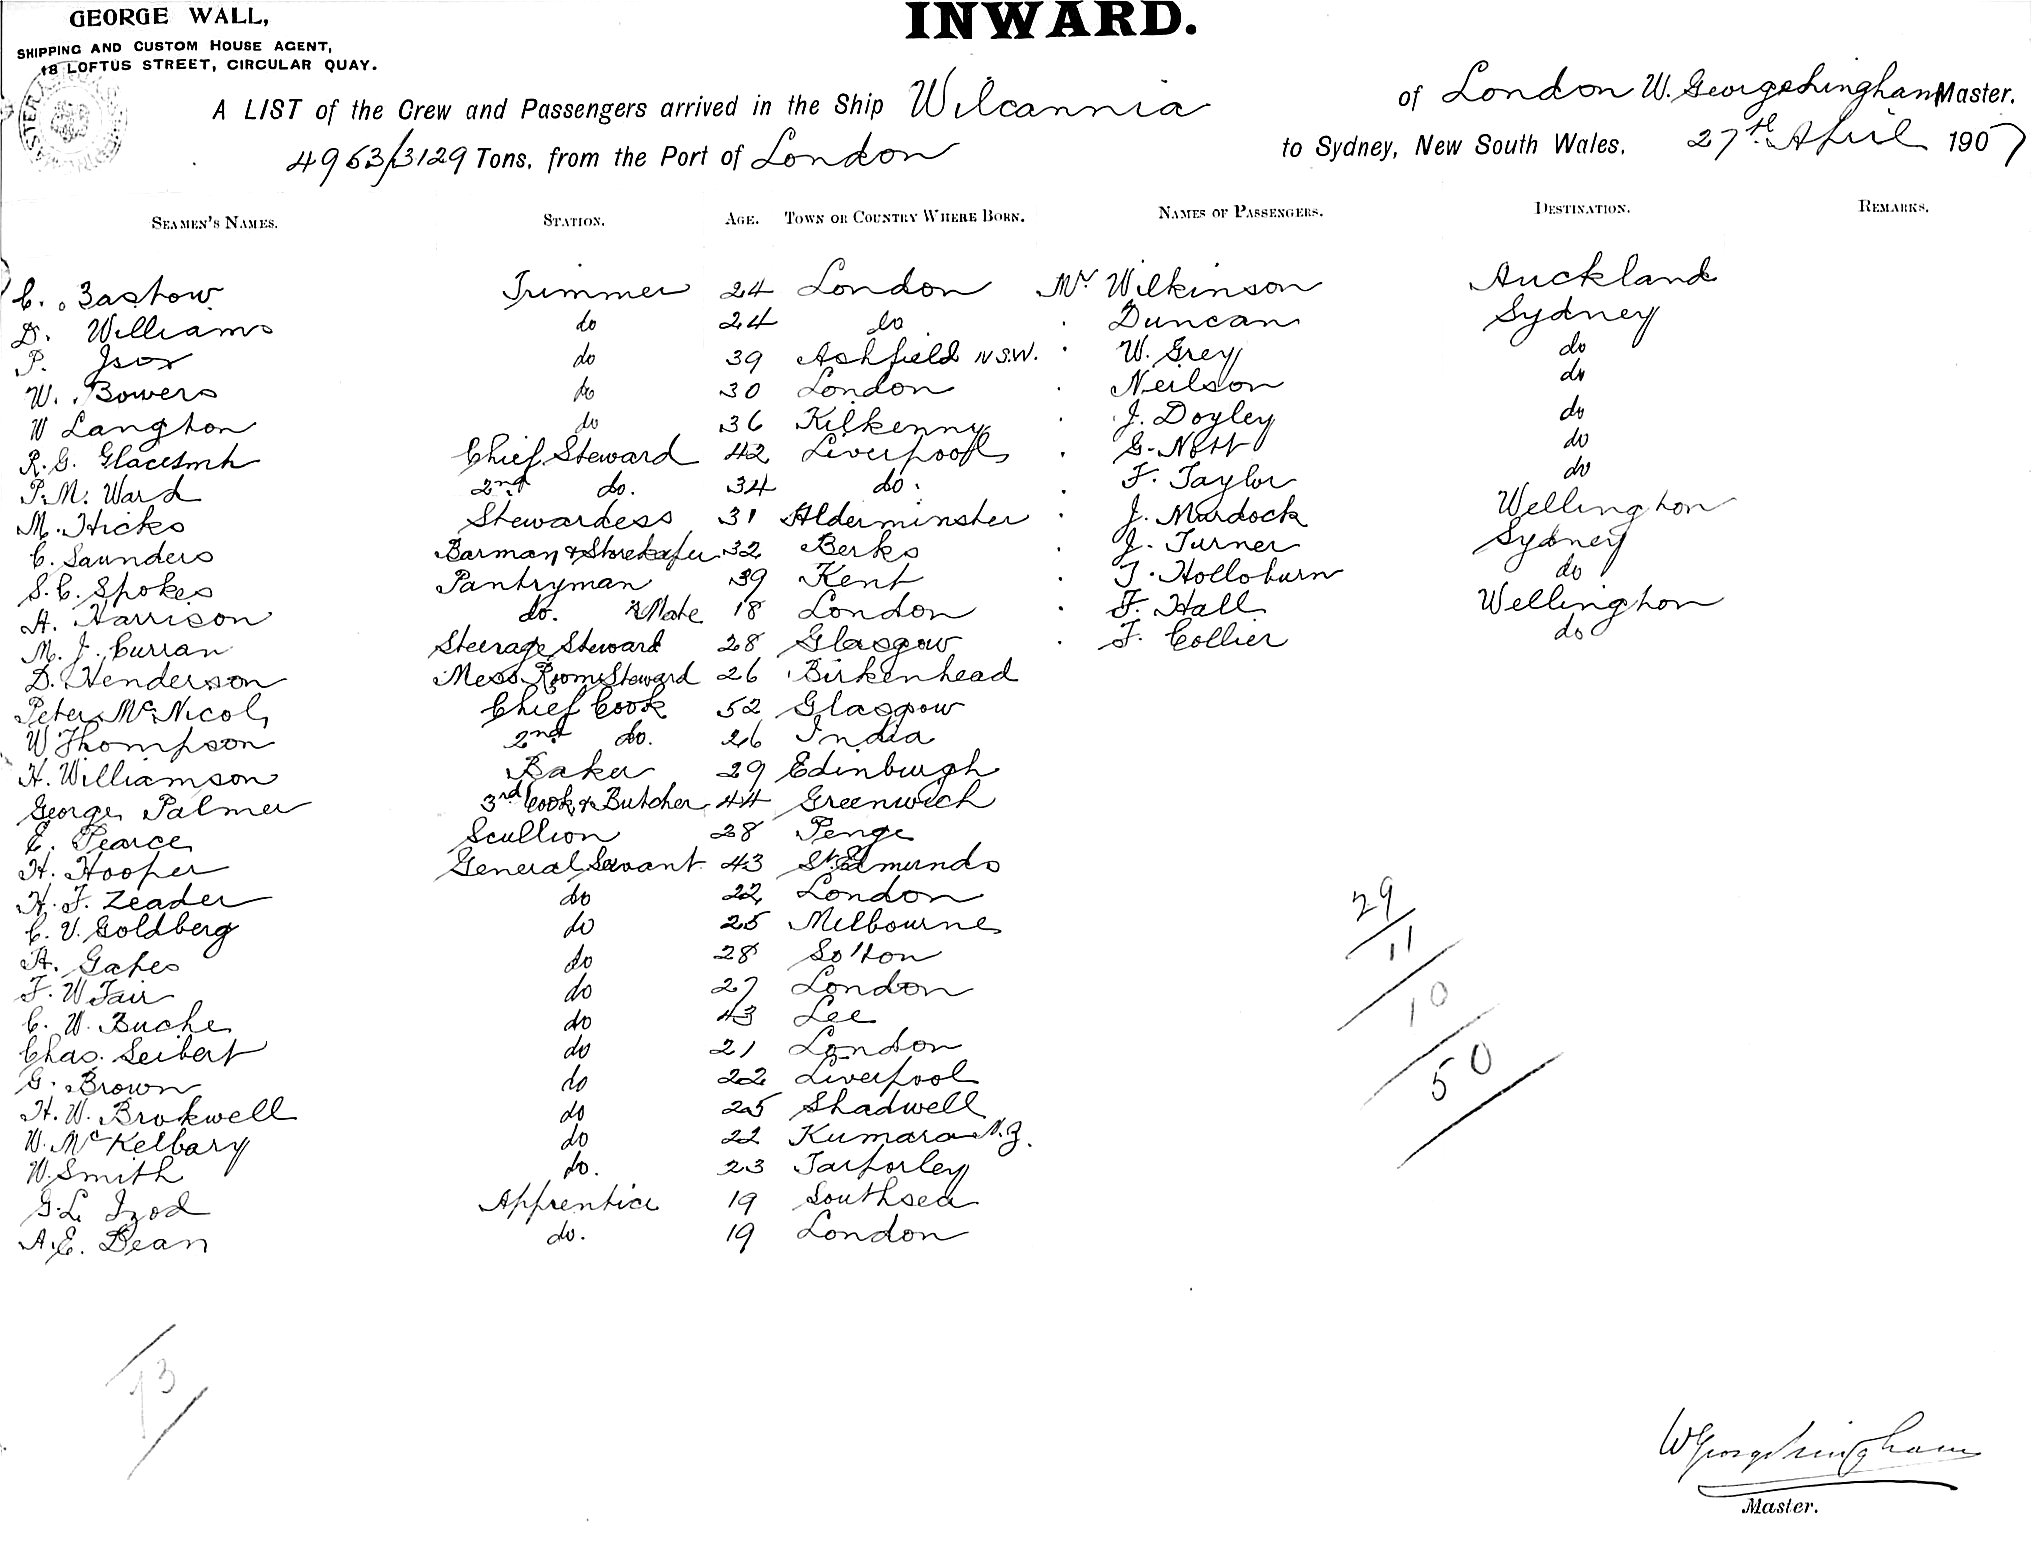 GEORGE WALL,
SHIPPING AND CUSTOM HOUSE AGENT,
18 LOFTUS STREET, CIRCULAR QUAY.
INWARD.
A LIST of the Crew and Passengers arrived in the Ship Wilcannia of London W. Georgeshingham Master.
4953/3129 Tons, from the Port of London to Sydney, New South Wales, 27th April 1907
SEAMEN'S NAMES. STATION. AGE. TOWN OR COUNTRY WHERE BORN. NAMES OF PASSENGERS. DESTINATION. REMARKS.
C. Bastow Trimmer 24 London Mr Wilkinson Auckland
D. Williams do 24 do . Duncan Sydney
P. do 39 Ashfield N.S.W. . W. Grey do
W. Bowers do 30 London . Neilson do
W Langton do 36 Kilkenny . J. Doyley do
R.G. Chief Steward 42 Liverpool . G. Nott do
P.M. Ward 2nd do. 34 do. . F. Taylor do
M. Hicks Stewardess 31 Alderminster . J. Murdock Wellington
C. Saunders Barman & Storekeeper 32 Berks . J. Turner Sydney
S.C. Spokes Pantryman 39 Kent . T. Holloburn do
H. Harrison do. & Mate 18 London . F. Hall Wellington
M. J. Curran Steerage Steward 28 Glasgow . F. Collier do
D. Henderson Mess Room Steward 26 Birkenhead
Peter McNicol Chief Cook 52 Glasgow
W Thompson 2nd do. 26 India
H. Williamson Baker 29 Edinburgh
George Palmer 3rd Cook & Butcher 44 Greenwich
E. Pearce Scullion 28 Penge
H. Hooper General Servant 43 St Edmunds
H. F. Zeader do 22 London
C. V. Goldberg do 25 Melbourne
H. Gates do 28 So'ton
F. W Fair do 27 London
C. W. Buche do 43 Lee
Chas. Seibert do 21 London
G. Brown do 22 Liverpool
H. W. Brokwell do 25 Shadwell
W. McKelbary do 22 Kumara N.Z.
W. Smith do. 23 Tarporley
G.L. Izod Apprentice 19 Southsea
A.E. Dean do. 19 London
29
11
10
50
93
Master.